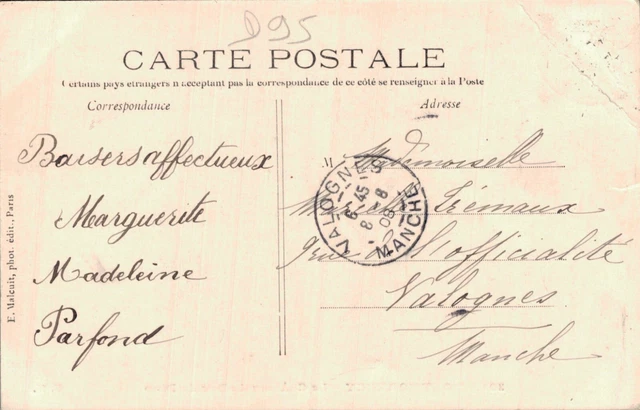 D95
CARTE POSTALE
Certains pays étrangers n'acceptant pas la correspondance de ce côté se renseigner à la Poste
Correspondance
Adresse
Baisers affectueux
Marguerite
Madeleine
Parfond
M Mademoiselle
Trémaux
rue de l'officialité
Valognes
Manche
VALOGNES
6 45
8 - 8
08
MANCHE
E. Malcuit, phot. édit., Paris